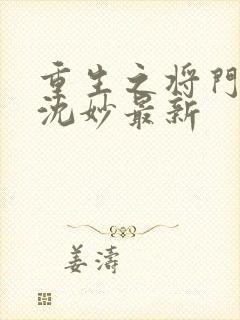 重生之将门
沈妙最新
姜涛